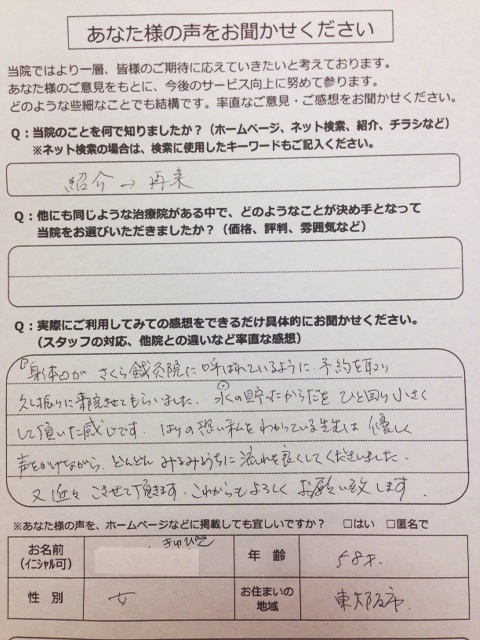 あなた様の声をお聞かせください
当院ではより一層、皆様のご期待に応えていきたいと考えております。
あなた様のご意見をもとに、今後のサービス向上に努めて参ります。
どのような些細なことでも結構です。率直なご意見・ご感想をお聞かせください。
Q：当院のことを何で知りましたか？（ホームページ、ネット検索、紹介、チラシなど）
※ネット検索の場合は、検索に使用したキーワードもご記入ください。
紹介→再来
Q：他にも同じような治療院がある中で、どのようなことが決め手となって
当院をお選びいただきましたか？（価格、評判、雰囲気など）
Q：実際にご利用してみての感想をできるだけ具体的にお聞かせください。
（スタッフの対応、他院との違いなど率直な感想）
身体が さくら鍼灸院に呼ばれているように 予約を取り
久し振りに 来院させてもらいました。水の貯ったからだを ひと回り小さく
して頂いた感じです。はりの恐い私を わかっている先生は 優しく
声をかけながら、どんどん みるみるうちに 流れを良くしてくださいました。
又近々 こさせて頂きます。これからもよろしく お願い致します。
※あなた様の声を、ホームページなどに掲載しても宜しいですか？ □はい □匿名で
お名前
（イニシャル可）
年 齢
58才.
性 別
女
お住まいの
地域
東大阪市